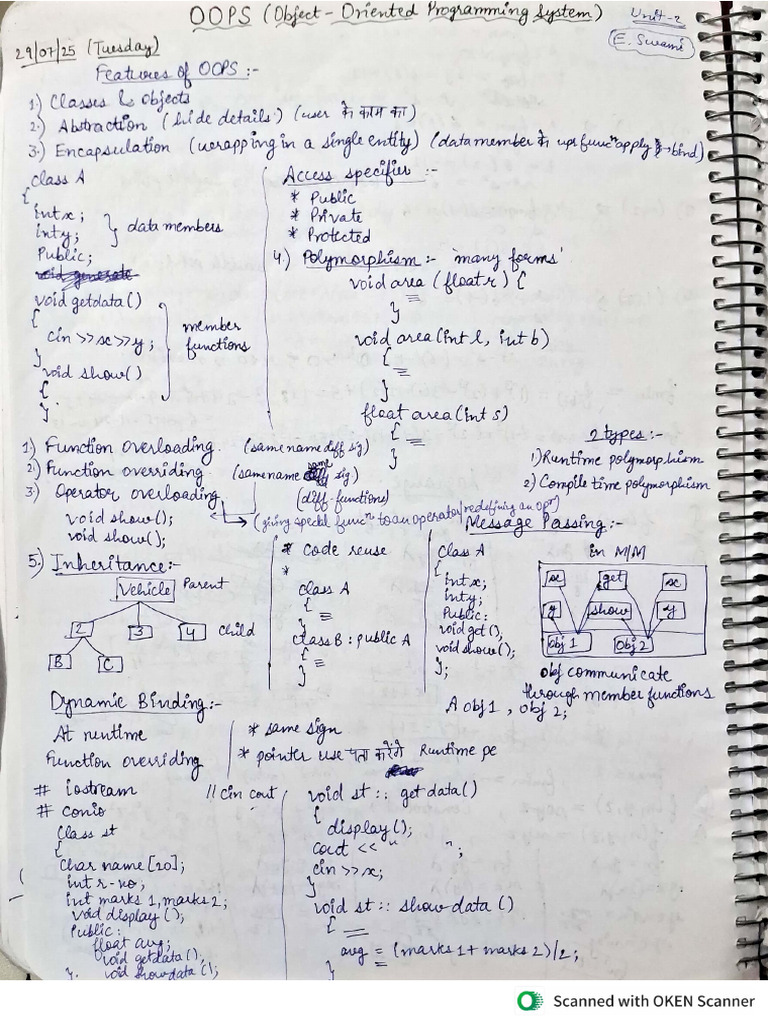 OOPS (Object-Oriented Programming System)
Unit-2
E. Swami
29/07/25 (Tuesday)
Features of OOPS :-
1.) Classes & Objects
2.) Abstraction (hide details) (user के काम का)
3.) Encapsulation (wrapping in a single entity) (data member के upr funcⁿ apply → bind)
Class A
{
int x ;
int y ;
} data members
Public ;
void getdata ()
{
cin >> x >> y ;
}
void show ()
{
}
member functions
Access specifier :-
* Public
* Private
* Protected
4.) Polymorphism :- 'many forms'
void area (float r) {
}
void area (int l, int b)
{
}
float area (int s)
{
}
2 types :-
1) Runtime polymorphism
2) Compile time polymorphism
1) Function overloading (same name diff sig)
2) Function overriding (same name same sig)
(diff-functions)
3) Operator overloading
(giving special funcⁿ to an operator/redefining an opr)
void show();
void show();
5.) Inheritance :-
Vehicle Parent
2 3 4 Child
B C
* Code reuse
*
Class A
{
}
Class B : public A
{
}
Message Passing :-
Class A
{
int x;
int y;
Public :
void get ();
void show();
};
in M/M
x get x
y show y
Obj 1 Obj 2
obj communicate
through member functions
A obj 1 , obj 2;
Dynamic Binding :-
At runtime
Function overriding
* same sign
* pointer use पता करेंगे Runtime pe
# iostream // cin cout
# conio
Class st
{
Char name [20];
int r-no;
int marks 1, marks 2;
void display ();
Public :
float avg;
void getdata ();
void showdata ();
}.
void st :: getdata ()
{
display ();
cout << " ";
cin >> x;
}
void st :: show data ()
{
avg = (marks 1 + marks 2)/2;
}
Scanned with OKEN Scanner